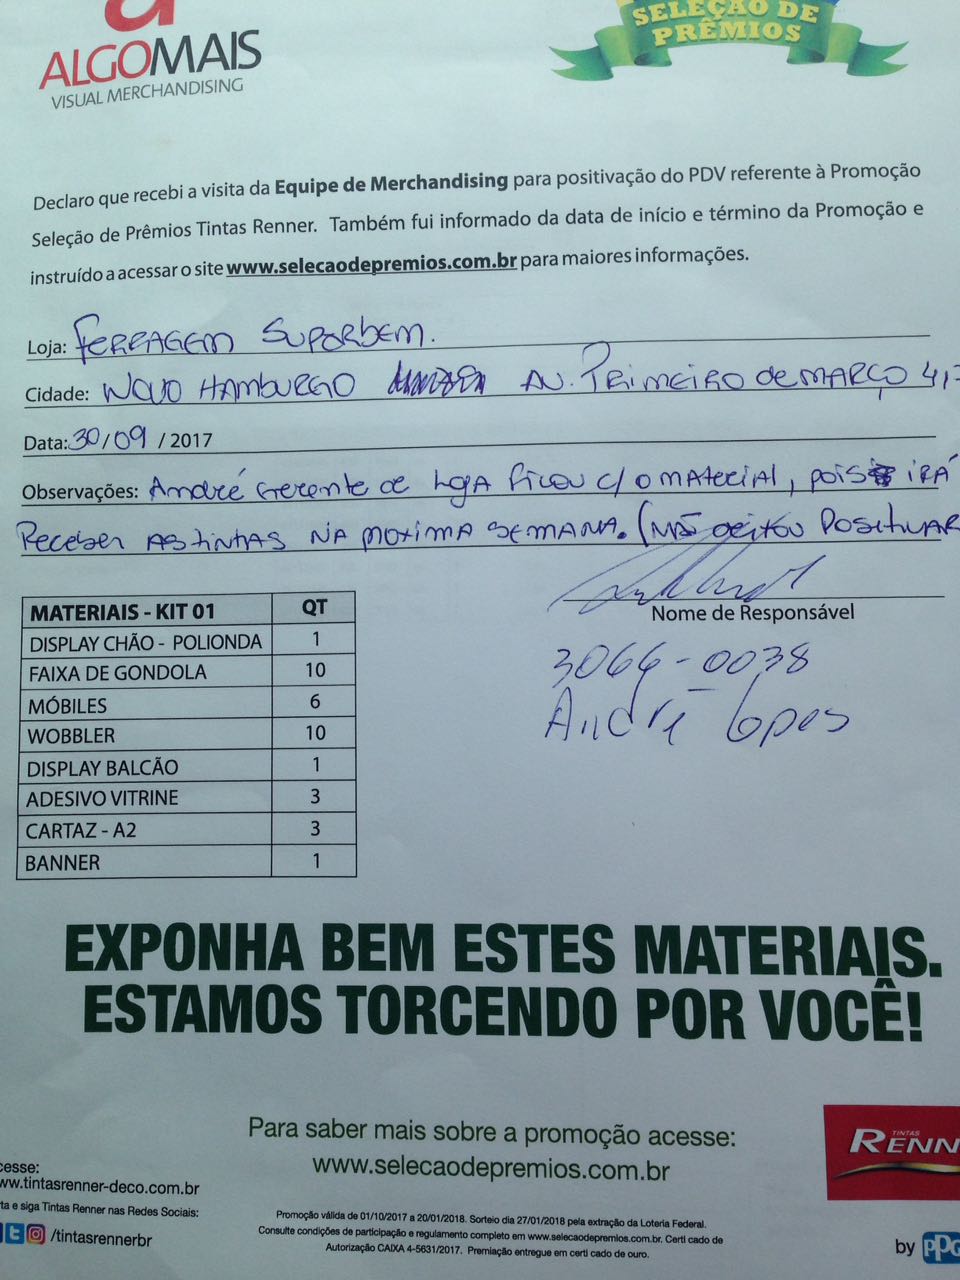 ALGOMAIS
VISUAL MERCHANDISING
SELEÇÃO DE
PRÊMIOS
Declaro que recebi a visita da Equipe de Merchandising para positivação do PDV referente à Promoção
Seleção de Prêmios Tintas Renner. Também fui informado da data de início e término da Promoção e
instruído a acessar o site www.selecaodepremios.com.br para maiores informações.
Loja: FERRAGEM SUPORBEM.
Cidade: NOVO HAMBURGO AV. PRIMEIRO DE MARÇO 4,
Data: 30/09 / 2017
Observações: André Gerente de Loja ficou c/o material, pois IRÁ
Receber AS TINTAS NA PROXIMA SEMANA. (NÃO deixou Positivar
Nome de Responsável
3066-0038
André Lopes
MATERIAIS - KIT 01 QT
DISPLAY CHÃO - POLIONDA 1
FAIXA DE GONDOLA 10
MÓBILES 6
WOBBLER 10
DISPLAY BALCÃO 1
ADESIVO VITRINE 3
CARTAZ - A2 3
BANNER 1
EXPONHA BEM ESTES MATERIAIS.
ESTAMOS TORCENDO POR VOCÊ!
Para saber mais sobre a promoção acesse:
www.selecaodepremios.com.br
TINTAS
RENN
cesse:
ww.tintasrenner-deco.com.br
rta e siga Tintas Renner nas Redes Sociais:
/tintasrennerbr
Promoção válida de 01/10/2017 a 20/01/2018. Sorteio dia 27/01/2018 pela extração da Loteria Federal.
Consulte condições de participação e regulamento completo em www.selecaodepremios.com.br. Certi cado de
Autorização CAIXA 4-5631/2017. Premiação entregue em certi cado de ouro.
by PPG